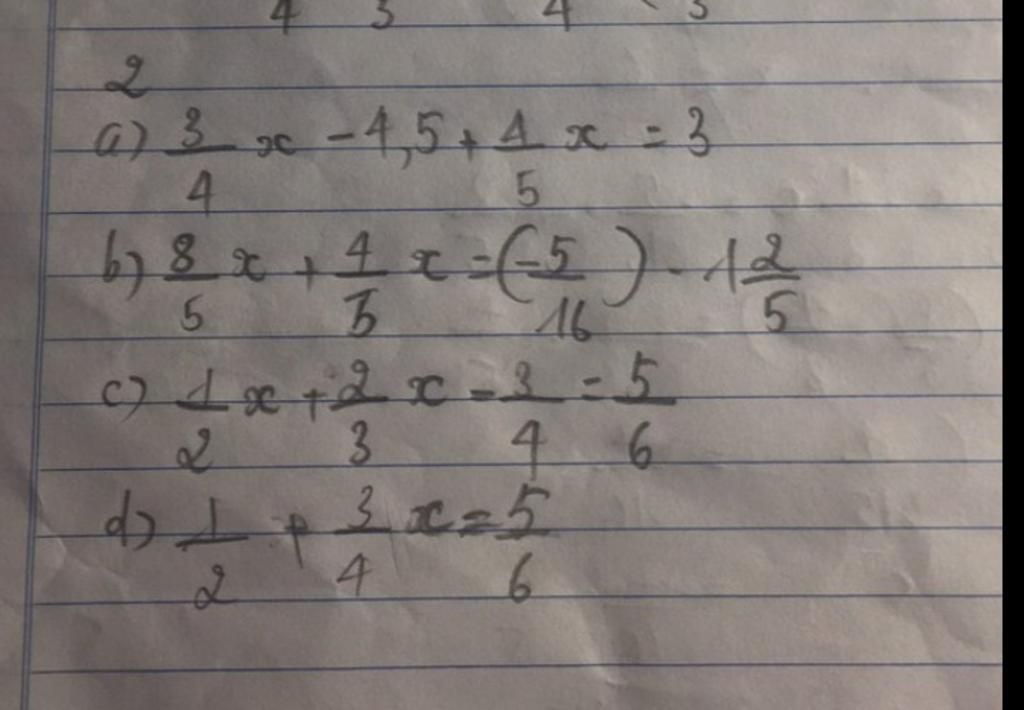 4 3 4 3
2
a) 3/4 x - 4,5 + 4/5 x = 3
b) 8/5 x + 4/5 x = (-5/16) - 1 2/5
c) 1/2 x + 2/3 x - 3/4 = 5/6
d) 1/2 + 3/4 x = 5/6